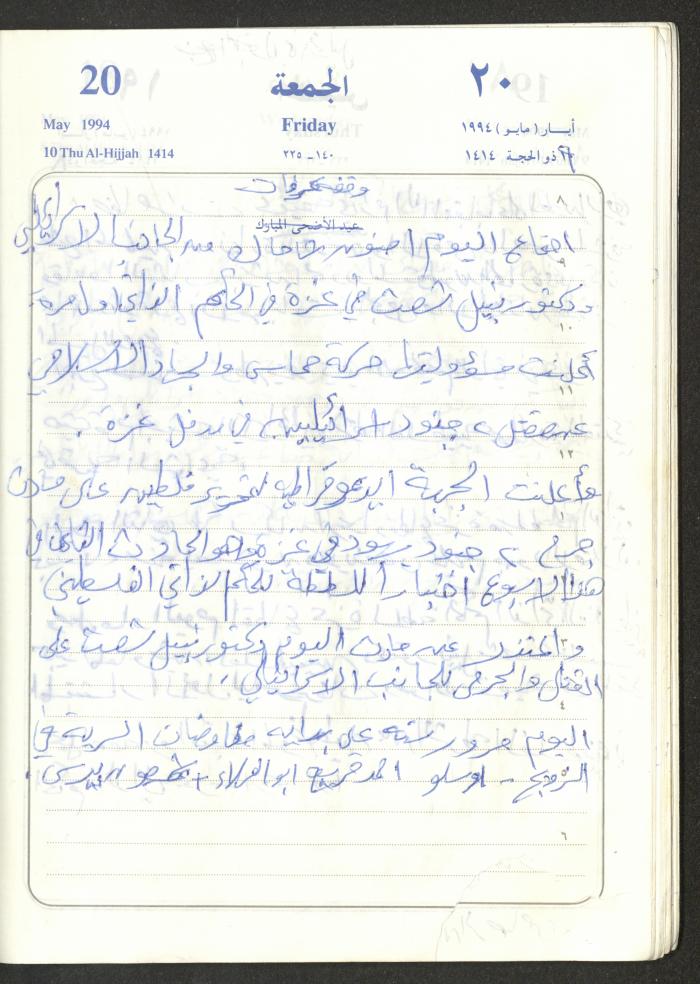 20 الجمعة ٢٠
May 1994 Friday أيــار ( مايو ) ١٩٩٤
10 Thu Al-Hijjah 1414 ١٤٠ – ٢٢٥ ذو الحجة ١٤١٤
وقفة عرفات
عيد الأضحى المبارك
٨
اجتماع اليوم امنون شاحاك من الجانب الاسرائيلي
٩
ودكتور نبيل شعث في غزة في الحكم الذاتي اول مرة
١٠
أعلنت مسؤوليتها حركة حماس والجهاد الاسلامي
١١
عن مقتل ٢ جنود اسرائيليين في مدخل غزة .
١٢
وأعلنت الجبهة الديموقراطية لتحرير فلسطين على حادث
١
جرح ٢ جنود يهود في غزة وهو الحادث الثاني في
هذا الاسبوع اختباراً للسلطة للحكم الذاتي الفلسطيني
٣
واعتذر عن حادث اليوم دكتور نبيل شعث على
القتل والجرحى للجانب الاسرائيلي .
٤
اليوم مرور سنة على بداية مفاوضات السرية في
النرويج - اوسلو احمد قريع ابو العلاء + شمعون بيرس .
٦